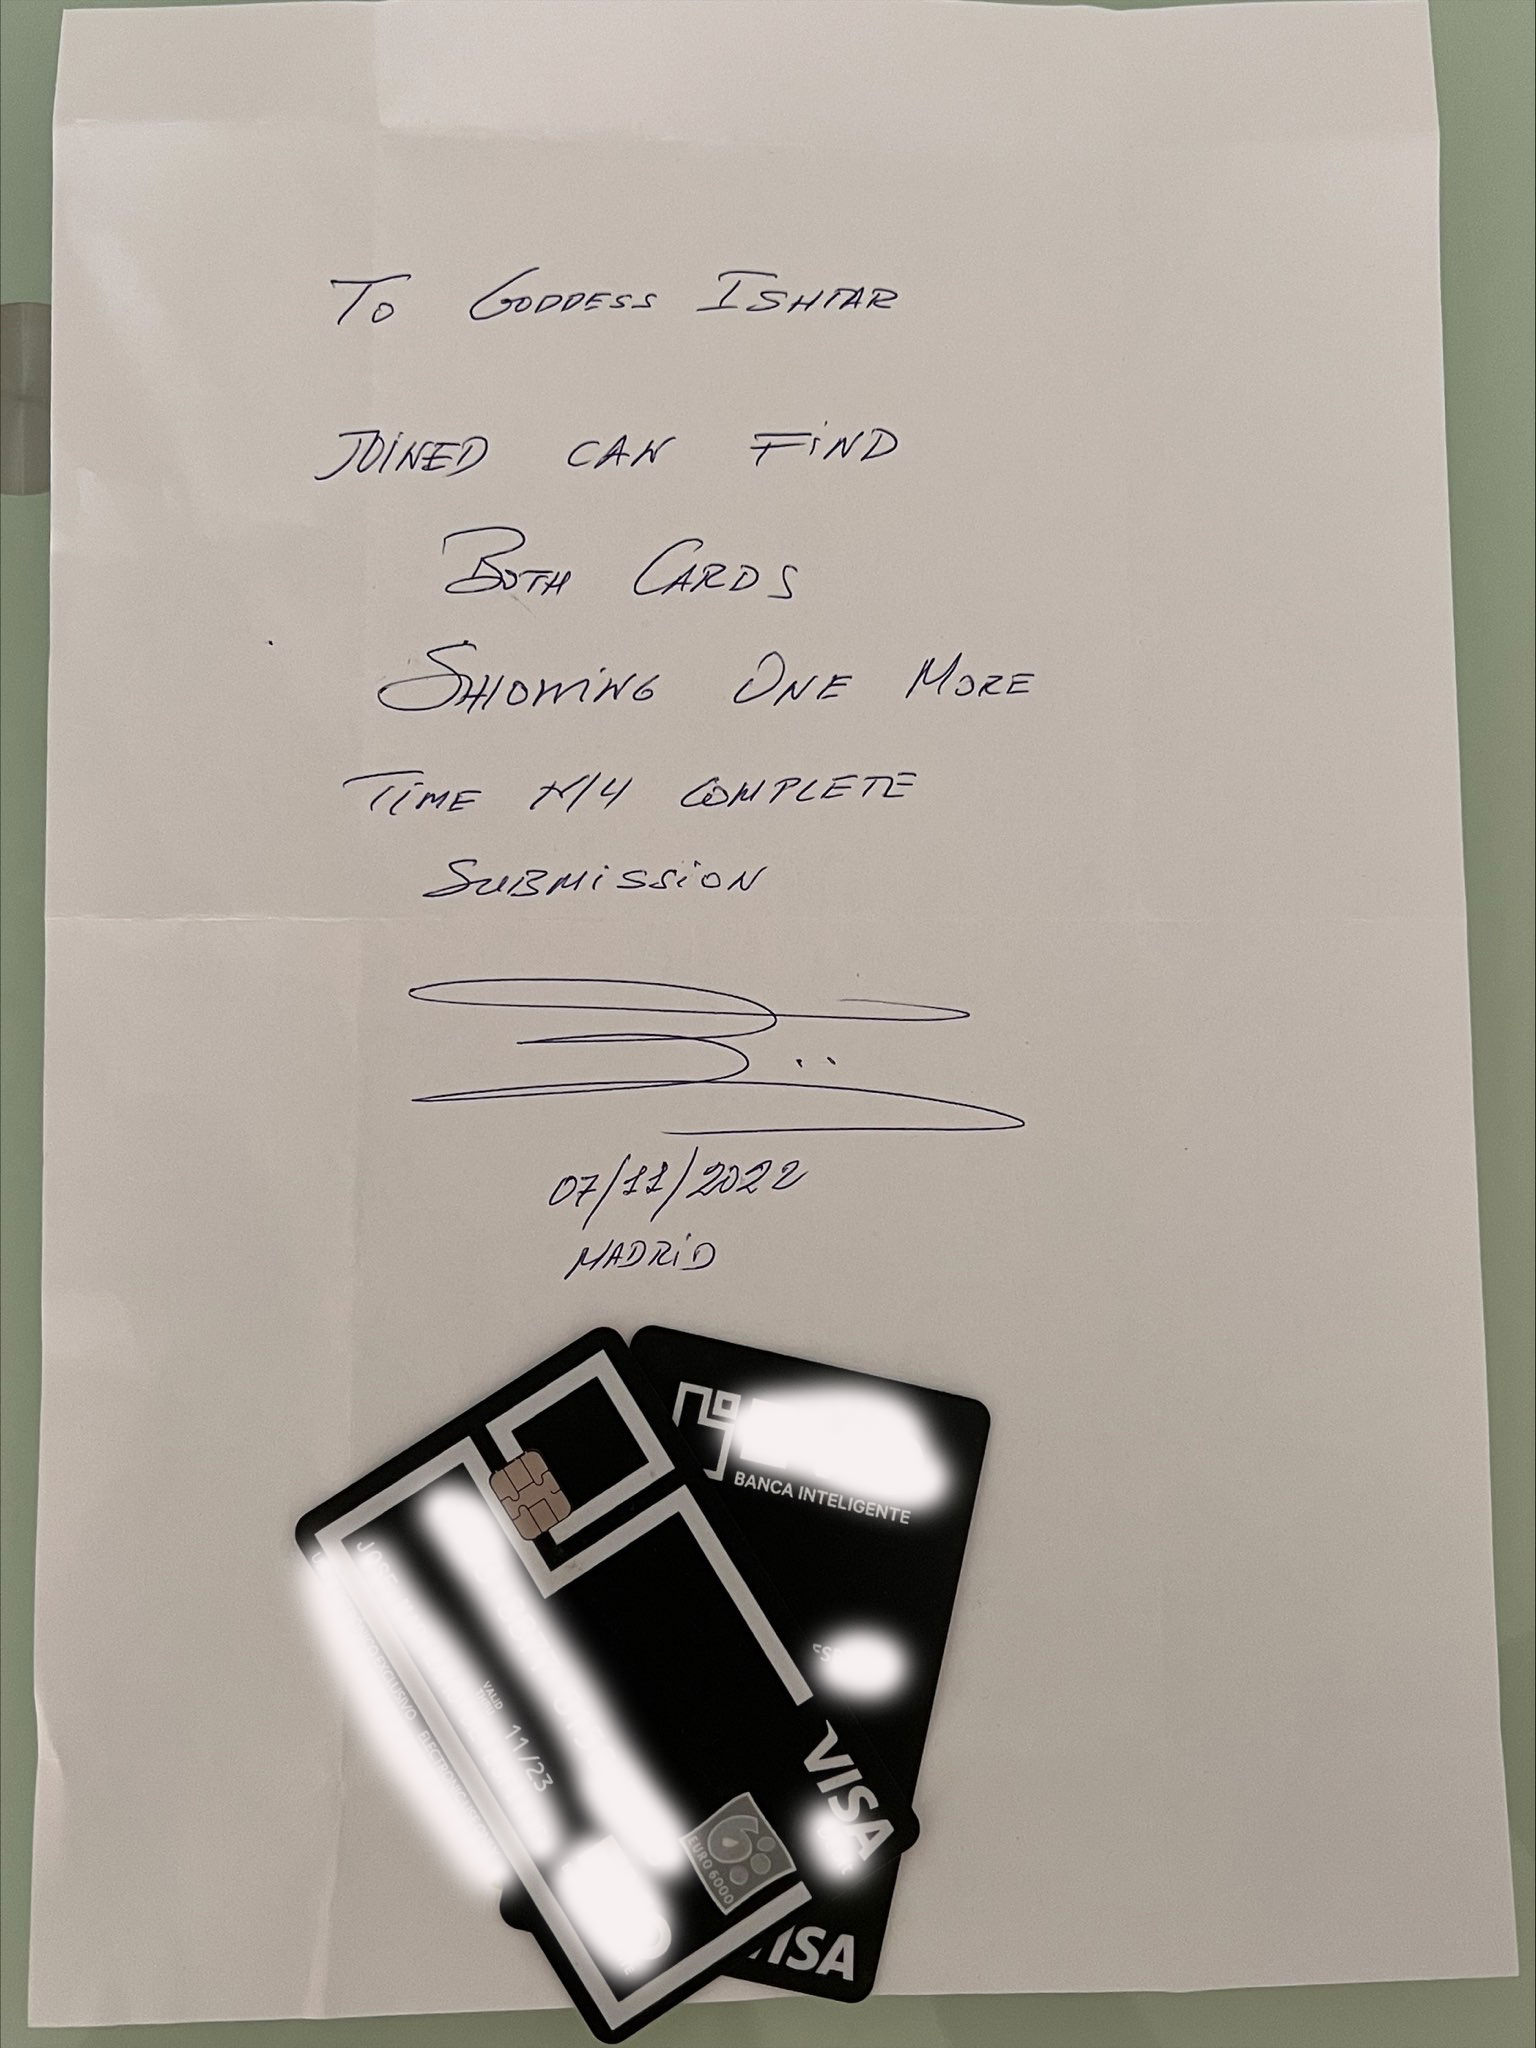 To GODDESS ISHTAR
JOINED CAN FIND
BOTH CARDS
SHOWING ONE MORE
TIME MY COMPLETE
SUBMISSION
07/11/2022
MADRID
BANCA INTELIGENTE
VALID
THRU
11/23
EXCLUSIVO
VISA
EURO 6000
VISA